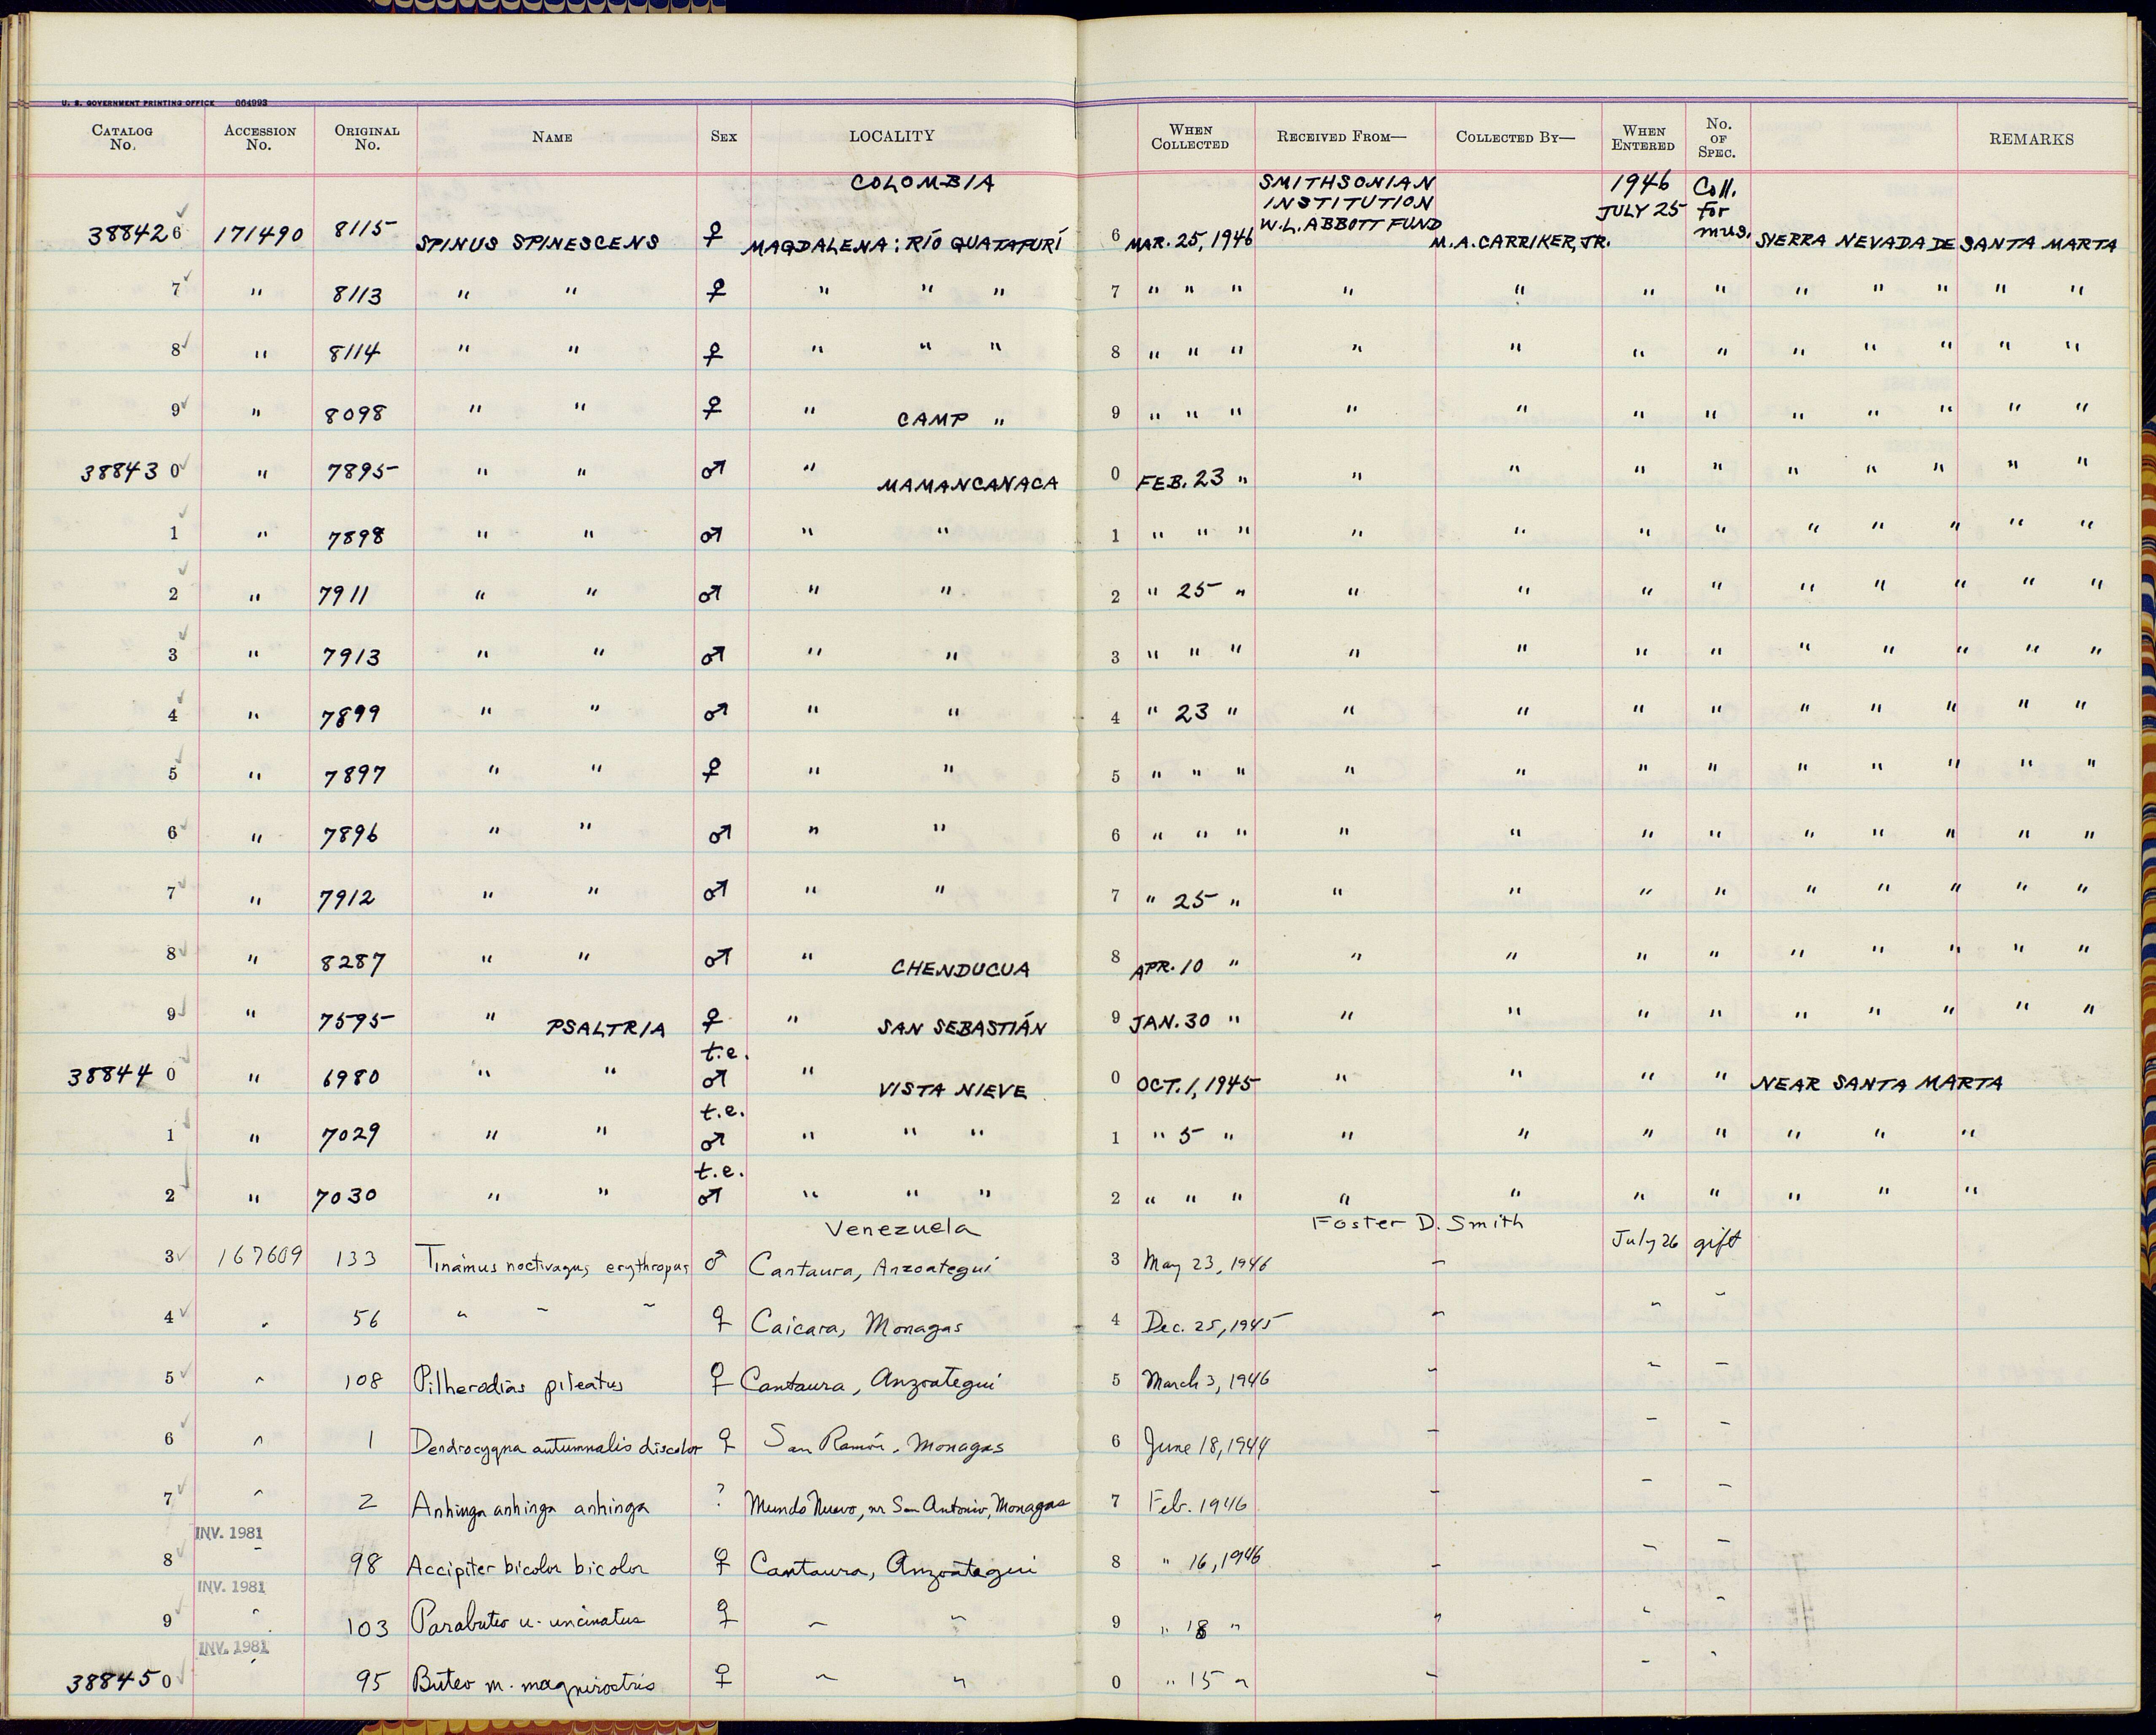 U. S. GOVERNMENT PRINTING OFFICE 664993
CATALOG No. ACCESSION No. ORIGINAL No. NAME SEX LOCALITY WHEN COLLECTED RECEIVED FROM— COLLECTED BY— WHEN ENTERED No. OF SPEC. REMARKS
COLOMBIA SMITHSONIAN INSTITUTION W.L. ABBOTT FUND 1946 JULY 25 Coll. for mus.
388426 171490 8115 SPINUS SPINESCENS ♀ MAGDALENA: RÍO GUATAPURÍ 6 MAR. 25, 1946 M.A. CARRIKER, JR. SIERRA NEVADA DE SANTA MARTA
7 " 8113 " " ♀ " " " 7 " " " " " " " " " " " "
8 " 8114 " " ♀ " " " 8 " " " " " " " " " " " "
9 " 8098 " " ♀ " CAMP " 9 " " " " " " " " " " " "
388430 " 7895 " " ♂ " MAMANCANACA 0 FEB. 23 " " " " " " " " " "
1 " 7898 " " ♂ " " 1 " " " " " " " " " " " "
2 " 7911 " " ♂ " " 2 " 25 " " " " " " " " " "
3 " 7913 " " ♂ " " 3 " " " " " " " " " " " "
4 " 7899 " " ♂ " " 4 " 23 " " " " " " " " " "
5 " 7897 " " ♀ " " 5 " " " " " " " " " " " "
6 " 7896 " " ♂ " " 6 " " " " " " " " " " " "
7 " 7912 " " ♂ " " 7 " 25 " " " " " " " " " "
8 " 8287 " " ♂ " CHENDUCUA 8 APR. 10 " " " " " " " " " "
9 " 7595 " PSALTRIA ♀ " SAN SEBASTIÁN 9 JAN. 30 " " " " " " " " " "
388440 " 6980 " " t.e. ♂ " VISTA NIEVE 0 OCT. 1, 1945 " " " " NEAR SANTA MARTA
1 " 7029 " " t.e. ♂ " " " 1 " 5 " " " " " " " "
2 " 7030 " " t.e. ♂ " " " 2 " " " " " " " " " "
Venezuela Foster D. Smith
3 167609 133 Tinamus noctivagus erythropus ♂ Cantaura, Anzoategui 3 May 23, 1946 " July 26 gift
4 " 56 " " " ♀ Caicara, Monagas 4 Dec. 25, 1945 " " "
5 " 108 Pilherodias pileatus ♀ Cantaura, Anzoategui 5 March 3, 1946 " " "
6 " 1 Dendrocygna autumnalis discolor ♀ San Ramón, Monagas 6 June 18, 1944 " " "
7 " 2 Anhinga anhinga anhinga ? Mundo Nuevo, nr San Antonio, Monagas 7 Feb. 1946 " " "
INV. 1981
8 " 98 Accipiter bicolor bicolor ♀ Cantaura, Anzoategui 8 " 16, 1946 " " "
INV. 1981
9 " 103 Parabuteo u. uncinatus ♀ " " 9 " 18 " " " "
INV. 1981
388450 " 95 Buteo m. magnirostris ♀ " " 0 " 15 " " " "